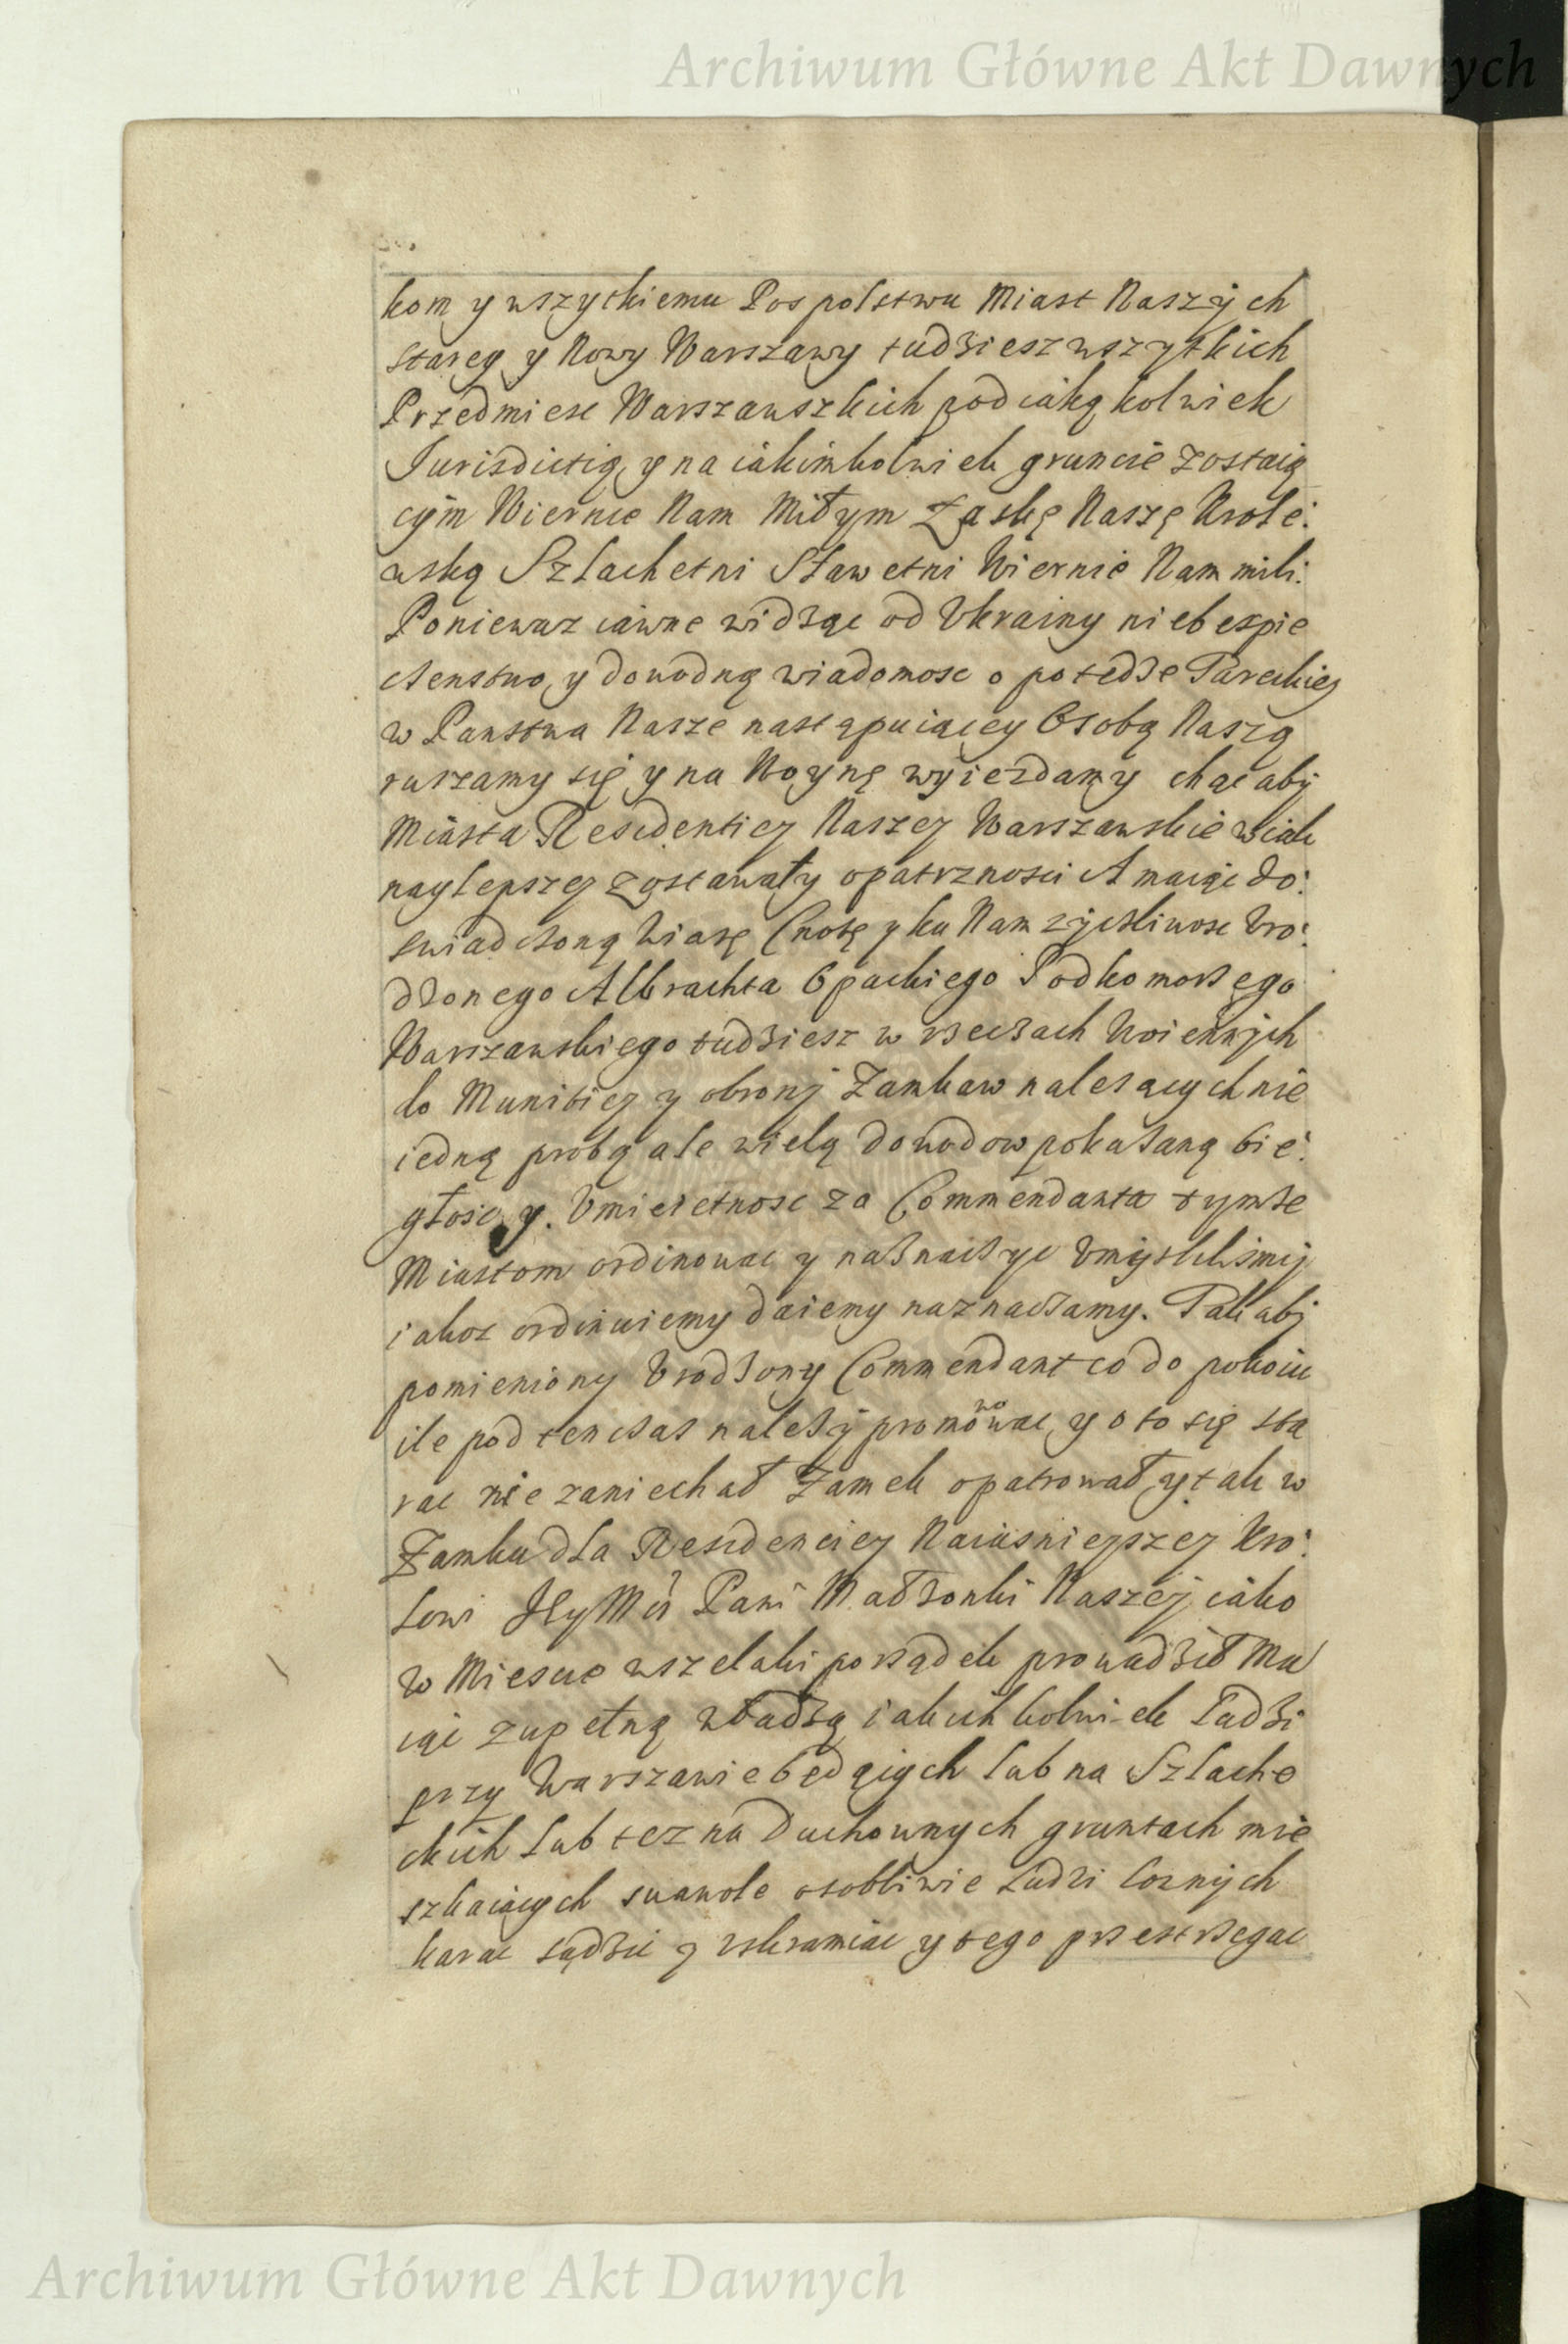 Archiwum Główne Akt Dawnych
kom y wszytkiemu Pospolstwu Miast Naszych
Starey y Nowy Warszawy tudziesz wszytkich
Przedmiesc Warszawszkich pod iaką kolwiek
Jurisdictią y na iakimkolwiek gruncie zostaią
cym Wiernie Nam Miłym Łaskę Naszę Krole:
wską Szlachetni Sławetni Wiernie Nam mili.
Poniewaz iawne widząc od Ukrainy niebespie
czenstwo y dowodną wiadomosc o potędze Tureckiey
w Panstwa Nasze nastąpuiącey Osobą Naszą
ruszamy się y na Woynę wyiezdamy chcąc aby
Miasta Residentiey Naszey Warszawskie w iak
naylepszey zostawały opatrznosci A maiąc do:
swiadczoną Wiarę Cnotę y ku Nam zyczliwosc Uro:
dzonego Albrachta Opackiego Podkomorzego
Warszawskiego tudziesz w rzeczach Woiennych
do Munitiey y obrony Zamkow nalezących nie
iedną probą ale wielą dowodow pokazaną bie:
głosc y. Umieietnosc za Commendanta tymze
Miastom ordinowac y naznaczyc Umyslilismy
iakosz ordinuiemy daiemy naznaczamy. Tak aby
pomieniony Urodzony Commendant co do pokoiu
ile pod tenczas nalezy promowowac y o to się sta
rac nie zaniechał Zamek opatrował y tak w
Zamku dla Residenciey Naiasnieyszey Kro:
lowi JKyMći Pani Małzonki Naszey iako
w Miescie wszelaki porządek prowadził Ma
iąc zupełną władzą iakich kolwiek Ludzi
przy Warszawie będących lub na Szlache
ckich lub tez na Duchownych gruntach mie
szkaiących swawole osobliwie Ludzi loznych
karac sądzic y uskramiac y tego przestrzegac
Archiwum Główne Akt Dawnych